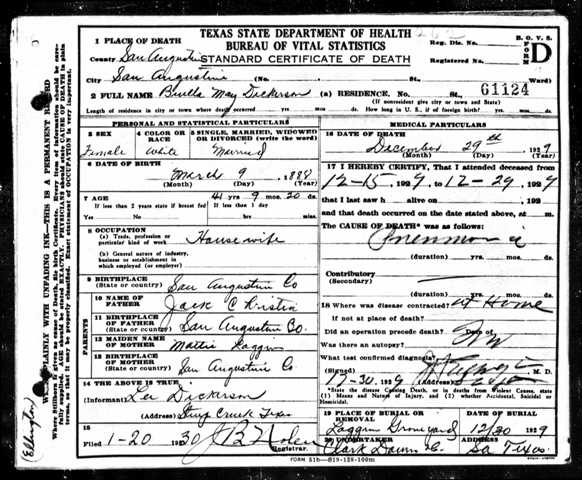 TEXAS STATE DEPARTMENT OF HEALTH
BUREAU OF VITAL STATISTICS
STANDARD CERTIFICATE OF DEATH
B. O. V. S.
FORM D
Reg. Dis. No.
Registered No.
61124
1 PLACE OF DEATH
County San Augustine
City San Augustine (No. St. Ward)
2 FULL NAME Buella May Dickerson (a) RESIDENCE. No. St.
(If nonresident give city or town and State)
Length of residence in city or town where death occurred yrs. mos. ds. How long in U. S., if of foreign birth? yrs. mos. ds.
PERSONAL AND STATISTICAL PARTICULARS
3 SEX
Female
4 COLOR OR RACE
White
5 SINGLE, MARRIED, WIDOWED OR DIVORCED (write the word)
Married
6 DATE OF BIRTH
March 9 1888
(Month) (Day) (Year)
7 AGE 41 yrs 9 mos. 20 ds.
If less than 2 years state if breast fed If less than 1 day
Yes No hrs. min.
8 OCCUPATION
(a) Trade, profession or particular kind of work House wife
(b) General nature of industry, business or establishment in which employed (or employer)
9 BIRTHPLACE
(State or country) San Augustine Co
PARENTS
10 NAME OF FATHER Jack Christin
11 BIRTHPLACE OF FATHER
(State or country) San Augustin Co.
12 MAIDEN NAME OF MOTHER Mattie
13 BIRTHPLACE OF MOTHER
(State or country) San Augustin Co
14 THE ABOVE IS TRUE
(Informant) Lee Dickerson
(Address) Texas
15
Filed 1-20 1930 J B Nolen
Registrar.
MEDICAL PARTICULARS
16 DATE OF DEATH
December 29th 1929
(Month) (Day) (Year)
17 I HEREBY CERTIFY, That I attended deceased from
12-15, 1929, to 12-29, 1929
that I last saw h alive on 192
and that death occurred on the date stated above, at m.
The CAUSE OF DEATH* was as follows:
Pneumonia
(duration) yrs. mos. ds.
Contributory
(Secondary)
(duration) yrs. mos. ds.
18 Where was disease contracted? at Home
If not at place of death?
Did an operation precede death? Date of
Was there an autopsy?
What test confirmed diagnosis?
(Signed) M. D.
12-30, 1929 (Address)
*State the disease Causing Death, or in deaths from Violent Causes, state
(1) Means and Nature of Injury, and (2) whether Accidental, Suicidal or
Homicidal.
19 PLACE OF BURIAL OR REMOVAL
Graveyard
DATE OF BURIAL
12/30 1929
20 UNDERTAKER
Clark Downs
ADDRESS
SA Texas
FORM 51b—819-128-100m
WRITE PLAINLY WITH UNFADING INK—THIS IS A PERMANENT RECORD
Ellington